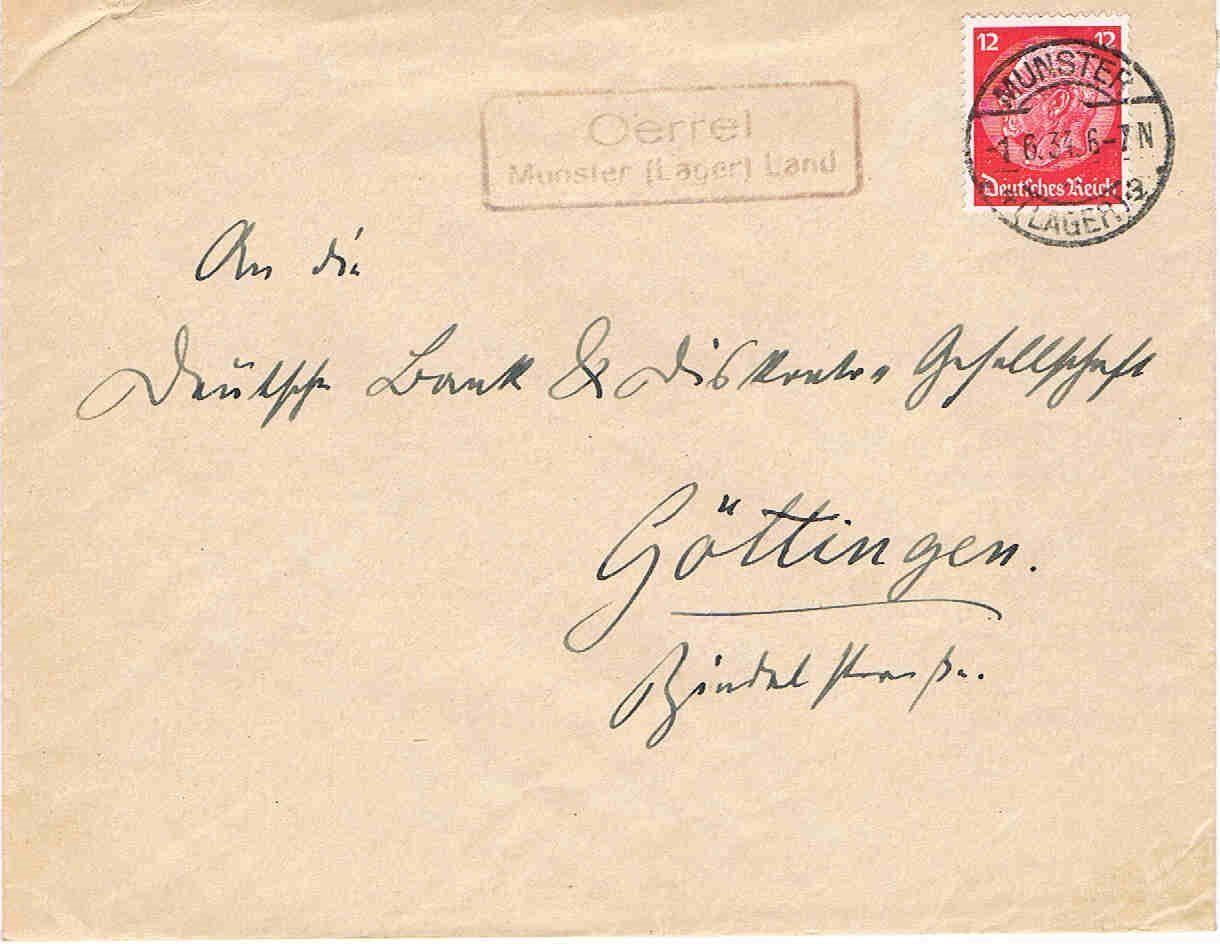 12 12
MUNSTER
-1.6.34.6-7N
Deutsches Reich
(LAGER)
Oerrel
Munster (Lager) Land
An die
Deutsche Bank & Diskonto Gesellschaft
Göttingen.